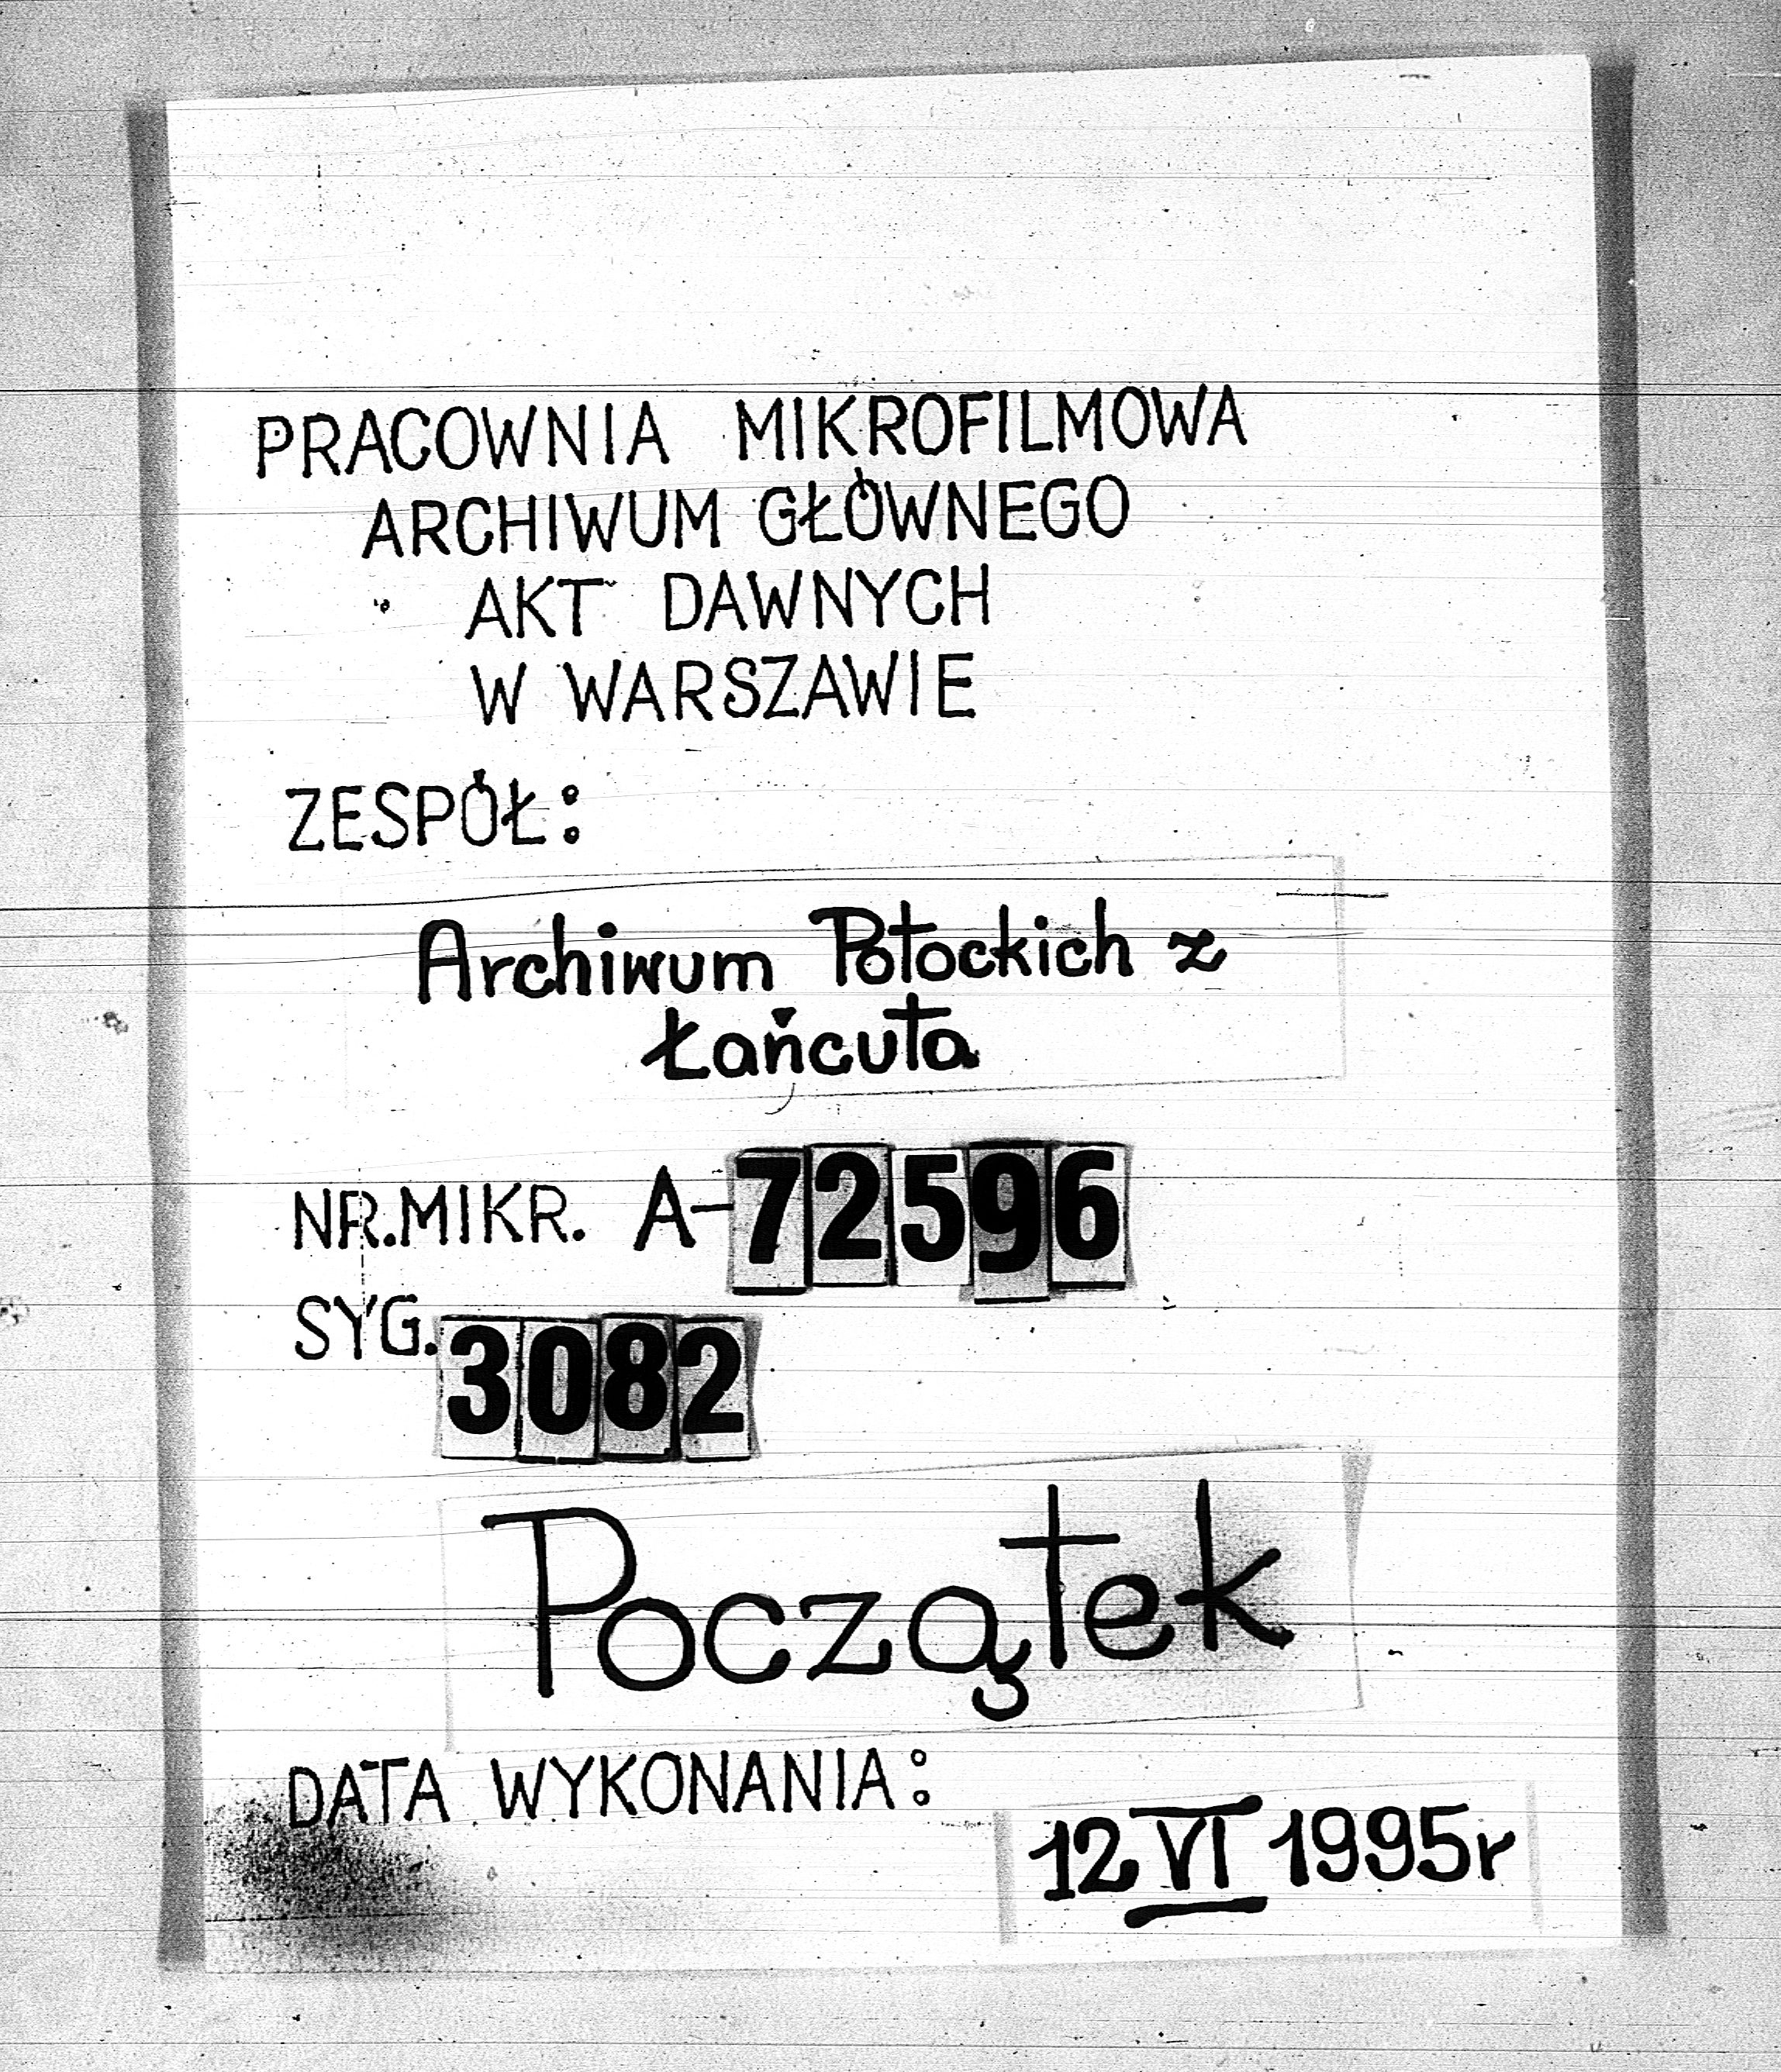 PRACOWNIA MIKROFILMOWA
ARCHIWUM GŁÓWNEGO
AKT DAWNYCH
W WARSZAWIE
ZESPÓŁ:
Archiwum Potockich z
Łańcuta
NR.MIKR. A-72596
SYG. 3082
Początek
DATA WYKONANIA:
12 VI 1995r